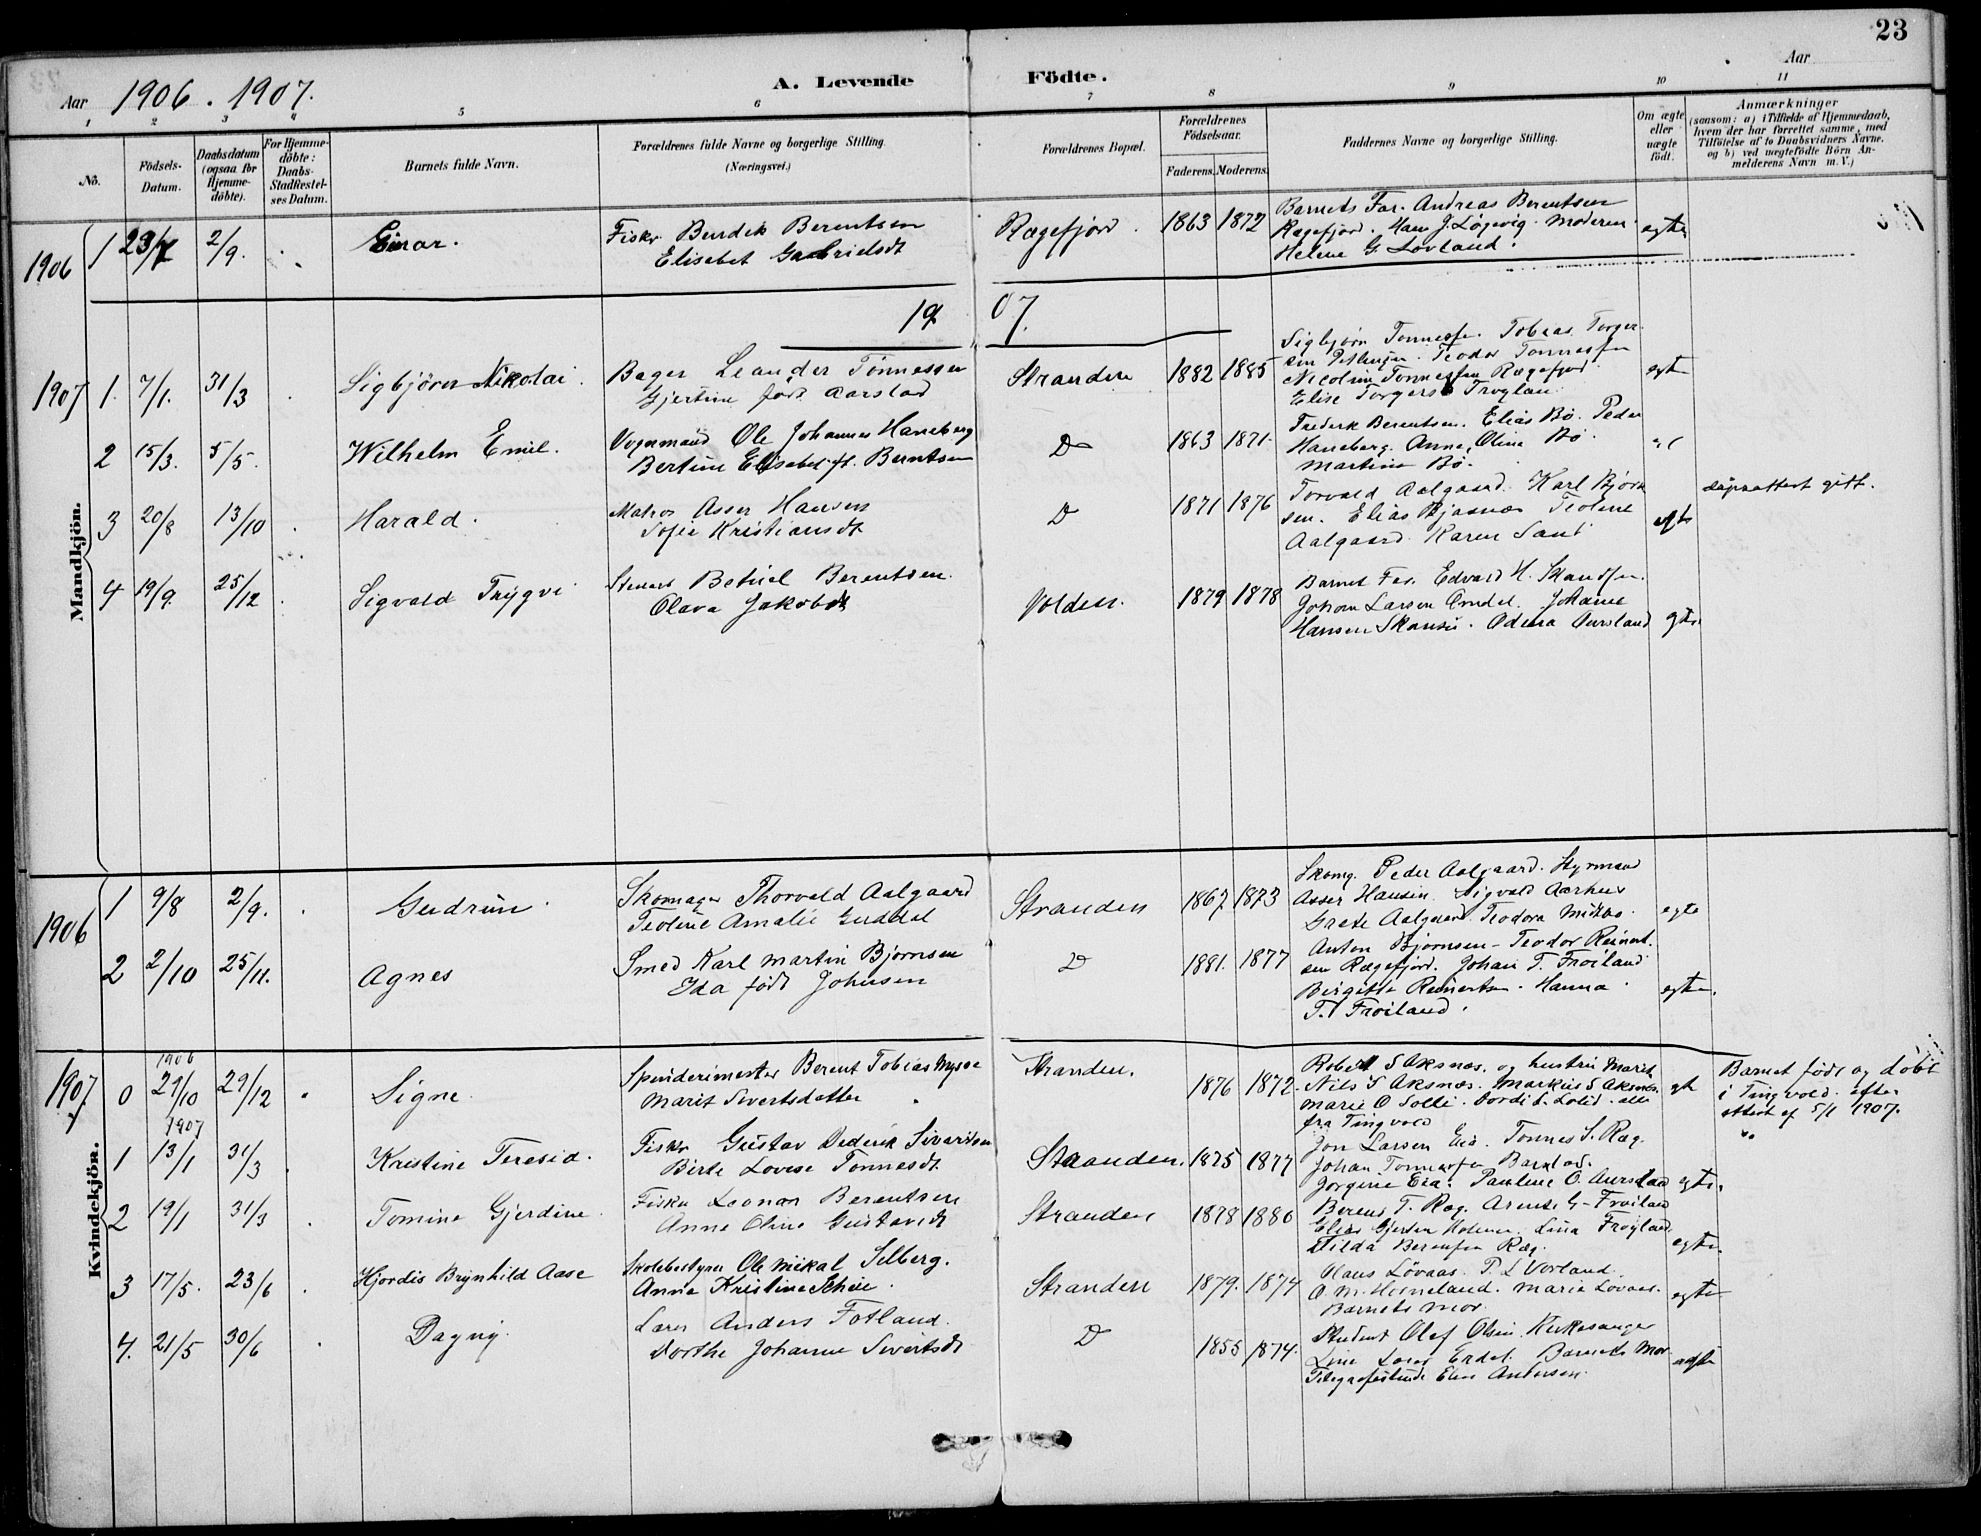 23
Aar 1906. 1907.
A. Levende Födte.
Aar
1 2 3 4 5 6 7 8 9 10 11
No.
Födsels-Datum.
Daabsdatum (ogsaa for Hjemme-döbte).
For Hjemme-döbte: Daabs-Stadfæstelses Datum.
Barnets fulde Navn.
Forældrenes fulde Navne og borgerlige Stilling (Næringsvei.)
Forældrenes Bopæl.
Forældrenes Födselsaar.
Faderens. Moderens.
Faddernes Navne og borgerlige Stilling.
Om ægte eller uægte födt.
Anmærkninger
(saasom: a) i Tilfælde af Hjemmedaab,
hvem der har forrettet samme, med
Tilföielse af to Daabsvidners Navne.
og b) ved uægtefödte Börn An-
melderens Navn m. V.)
Mandkjön.
1906 1 23/7 2/9. Einar.
Fisker Bendik Berentsen
Elisabet Gabrielsdt
Rægefjord. 1863 1872
Barnets Far. Andreas Berentsen
Rægefjord. Hans J. Løgevig. Moderen
Helene G. Lovland.
egte
1907.
1907 1. 7/1. 31/3 Sigbjörn Nikolai.
Bager Leander Tönnessen
Gjertine født Aarstad
Stranden 1882 1885
Sigbjørn Tonnessen. Tobias Torger-
sen. Teodor Tonnessen
Nicoline Tonnessen Rægefjord
Elise Torgers
egte
2 15/3. 5/5. Wilhelm Emil.
Vognmand Ole Johannes Haneberg
Bertine Elisabet f. Berntsen
Do 1863 1871.
Frederk Berentsen. Elias Bø. Peder
Haneberg. Anne Oline Bø.
Martine Bø.
3 20/8 13/10 Harald.
Matros Asser Hansen
Sofie Kristiansdt
D 1871 1876
Torvald Aalgaard. Karl Bjørn
sen. Elias Teoline
Aalgaard. Karen Sand
egte
daapsattest gitt.
4 19/9. 25/12 Sigvald Trygve
Stenars Betuel Berentsen.
Olava Jakobdt
Volden. 1879 1878
Barnet Far. Edvard H.
Johan Larsen Johanne
Hansen Skansen. Odena
egte
Kvindekjön.
1906 1 9/8 2/9. Gudrun.
Skomager Thorvald Aalgaard
Teoline Amalie Guddal
Stranden 1867 1873
Skomg. Peder Aalgaard. Styrmand
Asser Hansen. Sigvald Aarhus
Grete Aalgaard. Teodora Midtbø.
egte
2 2/10 25/11. Agnes
Smed Karl Martin Bjørnsen
Ida født Johnsen
D 1881. 1877
Anton Bjørnsen - Teodor Reinert-
sen Rægefjord. Johan T. Frøiland
Birgitte Reinertsen. Hanna
T. Frøiland.
egte.
1907
1906
0 29/10 29/12 Signe
Berent Tobias Mysse
Marit Sivertsdatter
Stranden. 1876 1872.
Robert S Aksnæs, og hustru Marit
Nils S Aksnæs. Markus S Aksnes.
Marie O Solli. alle
fra Tingvold
egt
Barnet født og döbt
i Tingvold. efter
attest af 5/1 1907.
1907
1 13/1 31/3 Kristine Teresia.
Fisker Gustav Dederik Sivertsen
Birte Lovise Tønnesdt.
Stranden. 1875 1877
Jon Larsen Eia. Tonnes S. Ræg.
Johan Tonnessen
Jorgine Eia. Pauline O.
egte.
2 19/1 31/3 Tomine Gjerdine
Fisker Leonar Berentsen
Anne Oline Gustavsdt
Stranden 1878 1880
Berent T. Ræg. Frøiland
Elias Gjertsen Lina Frøyland
Tilda Berentsen Ræg.
egte.
3 17/5. 23/6 Hjordis Brynhild Aase
Skolebestyrer Ole Mikal Selberg.
Anna Kristine Scheie
Stranden 1879. 1874
Claus Løvaas. P. L Vorland.
O. M. Homeland. Marie Løvaas.
Barnets mor.
egte
4. 21/5 30/6 Dagny.
Lærer Anders Fotland.
Dorthe Johanne Sivertsdt
D 1855 1874.
Student Olaf Olsen. Kirkesanger
Barnets Mor
Andersen.
egte